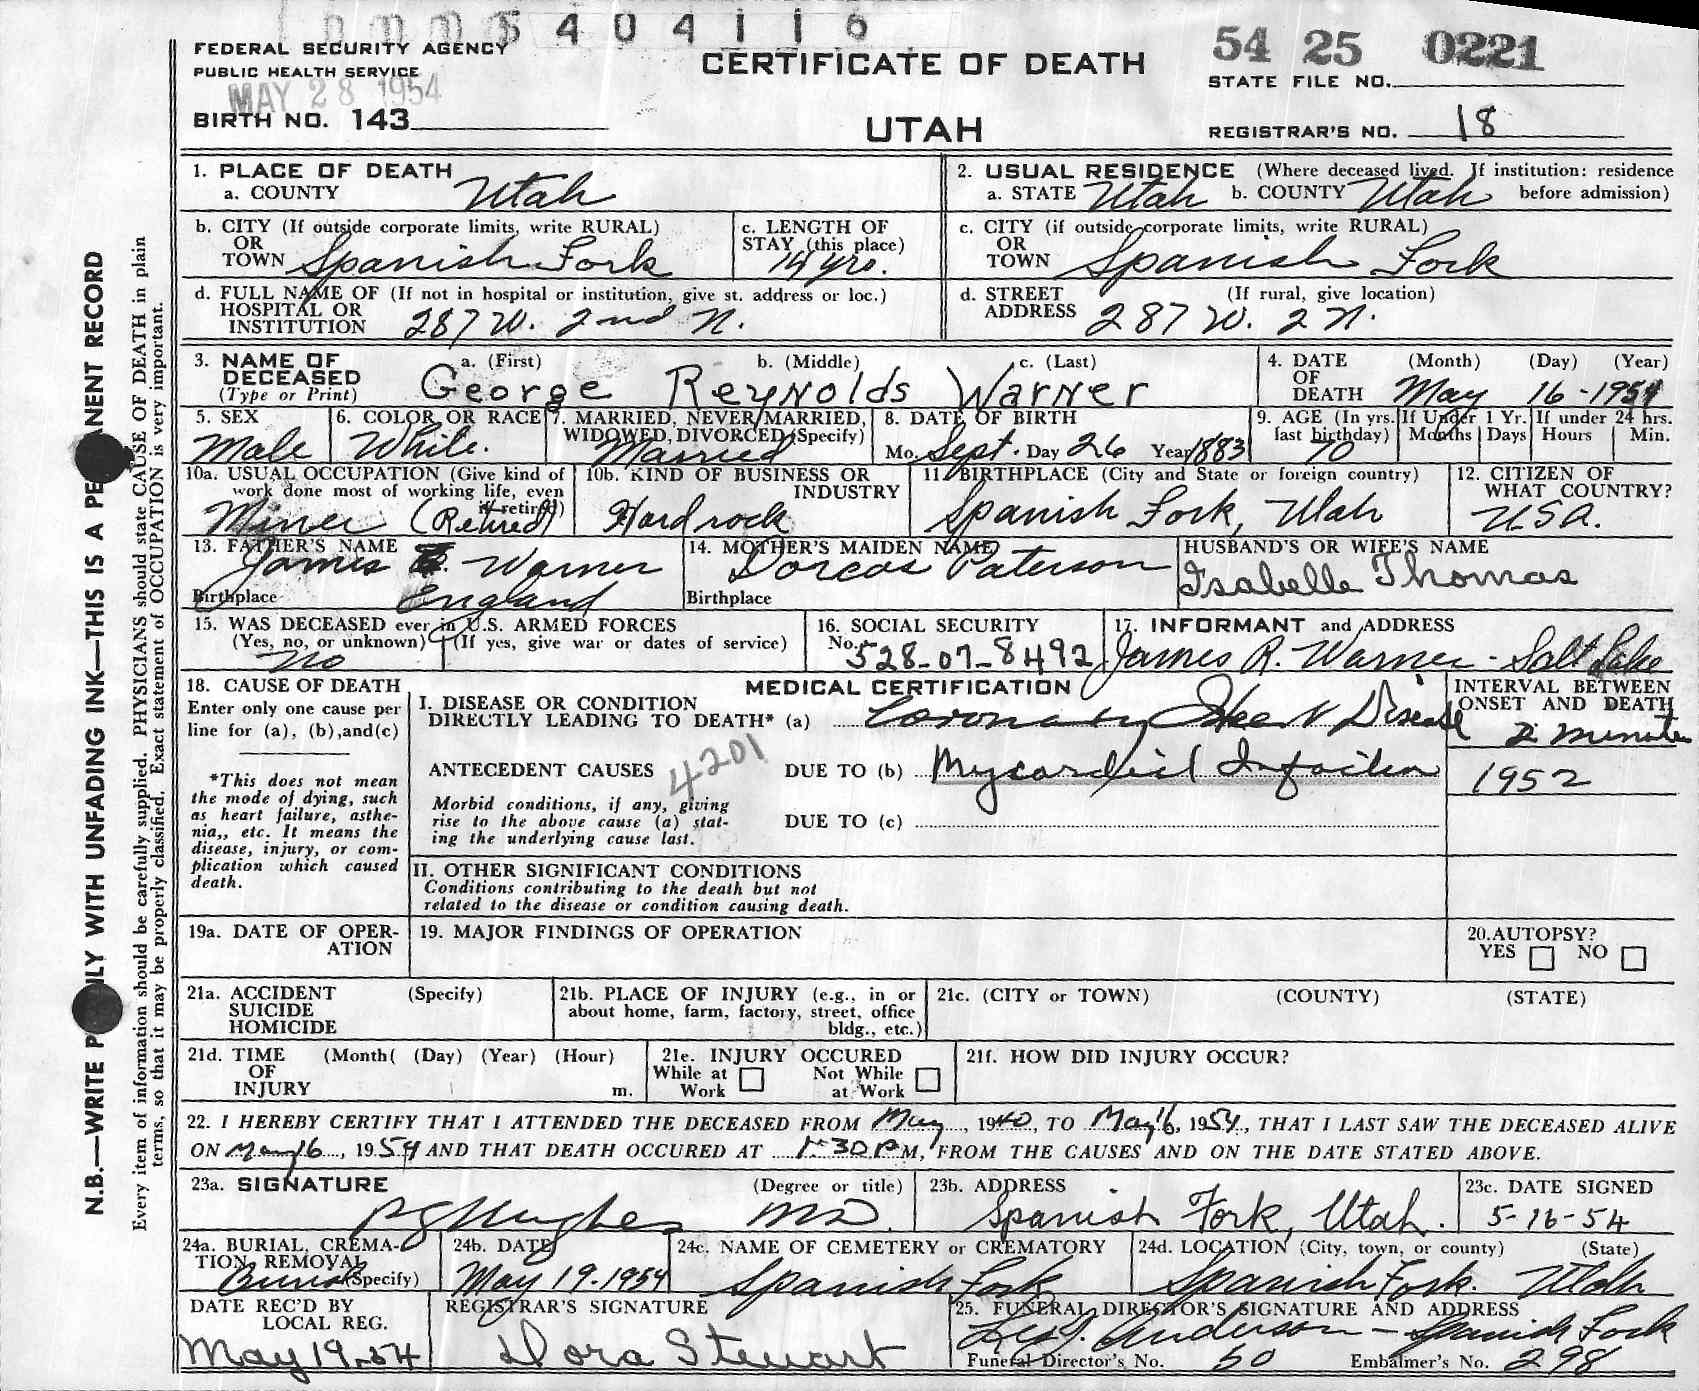 404116
FEDERAL SECURITY AGENCY
PUBLIC HEALTH SERVICE
MAY 28 1954
BIRTH NO. 143
CERTIFICATE OF DEATH
UTAH
54 25 0221
STATE FILE NO.
REGISTRAR'S NO. 18
N.B.—WRITE PLAINLY WITH UNFADING INK—THIS IS A PERMANENT RECORD
Every item of information should be carefully supplied. PHYSICIANS should state CAUSE OF DEATH in plain
terms, so that it may be properly classified. Exact statement of OCCUPATION is very important.
1. PLACE OF DEATH
a. COUNTY Utah
2. USUAL RESIDENCE (Where deceased lived. If institution: residence
a. STATE Utah b. COUNTY Utah before admission)
b. CITY (If outside corporate limits, write RURAL)
OR
TOWN Spanish Fork
c. LENGTH OF
STAY (this place)
14 yrs.
c. CITY (if outside corporate limits, write RURAL)
OR
TOWN Spanish Fork
d. FULL NAME OF (If not in hospital or institution, give st. address or loc.)
HOSPITAL OR
INSTITUTION 287 W. 2nd N.
d. STREET (If rural, give location)
ADDRESS 287 W. 2 N.
3. NAME OF a. (First) b. (Middle) c. (Last)
DECEASED
(Type or Print) George Reynolds Warner
4. DATE (Month) (Day) (Year)
OF
DEATH May 16-1954
5. SEX
Male
6. COLOR OR RACE
White.
7. MARRIED, NEVER MARRIED,
WIDOWED, DIVORCED (Specify)
Married
8. DATE OF BIRTH
Mo. Sept. Day 26 Year 1883
9. AGE (In yrs. If Under 1 Yr. If under 24 hrs.
last birthday) Months Days Hours Min.
70
10a. USUAL OCCUPATION (Give kind of
work done most of working life, even
if retired)
Miner (Retired)
10b. KIND OF BUSINESS OR
INDUSTRY
Hard rock
11. BIRTHPLACE (City and State or foreign country)
Spanish Fork, Utah
12. CITIZEN OF
WHAT COUNTRY?
USA.
13. FATHER'S NAME
James Warner
Birthplace England
14. MOTHER'S MAIDEN NAME
Dorcas Paterson
Birthplace
HUSBAND'S OR WIFE'S NAME
Isabelle Thomas
15. WAS DECEASED ever in U.S. ARMED FORCES
(Yes, no, or unknown) (If yes, give war or dates of service)
No
16. SOCIAL SECURITY
No. 528-07-8492
17. INFORMANT and ADDRESS
James R. Warner - Salt Lake
18. CAUSE OF DEATH
Enter only one cause per
line for (a), (b),and(c)
*This does not mean
the mode of dying, such
as heart failure, asthe-
nia,, etc. It means the
disease, injury, or com-
plication which caused
death.
MEDICAL CERTIFICATION
I. DISEASE OR CONDITION
DIRECTLY LEADING TO DEATH* (a) Coronary Heart Disease
INTERVAL BETWEEN
ONSET AND DEATH
2 Minutes
4201
ANTECEDENT CAUSES DUE TO (b) Mycardial Infarction
1952
Morbid conditions, if any, giving
rise to the above cause (a) stat-
ing the underlying cause last.
DUE TO (c)
II. OTHER SIGNIFICANT CONDITIONS
Conditions contributing to the death but not
related to the disease or condition causing death.
19a. DATE OF OPER-
ATION
19. MAJOR FINDINGS OF OPERATION
20.AUTOPSY?
YES NO
21a. ACCIDENT (Specify)
SUICIDE
HOMICIDE
21b. PLACE OF INJURY (e.g., in or
about home, farm, factory, street, office
bldg., etc.)
21c. (CITY or TOWN) (COUNTY) (STATE)
21d. TIME (Month( (Day) (Year) (Hour)
OF
INJURY m.
21e. INJURY OCCURED
While at Not While
Work at Work
21f. HOW DID INJURY OCCUR?
22. I HEREBY CERTIFY THAT I ATTENDED THE DECEASED FROM May, 1940, TO May 16, 1954, THAT I LAST SAW THE DECEASED ALIVE
ON May 16, 1954 AND THAT DEATH OCCURED AT 1:30 P M, FROM THE CAUSES AND ON THE DATE STATED ABOVE.
23a. SIGNATURE (Degree or title)
Hughes MD
23b. ADDRESS
Spanish Fork, Utah.
23c. DATE SIGNED
5-16-54
24a. BURIAL, CREMA-
TION, REMOVAL
(Specify)
Burial
24b. DATE
May 19-1954
24c. NAME OF CEMETERY or CREMATORY
Spanish Fork
24d. LOCATION (City, town, or county) (State)
Spanish Fork. Utah
DATE REC'D BY
LOCAL REG.
May 19-54
REGISTRAR'S SIGNATURE
Dora Stewart
25. FUNERAL DIRECTOR'S SIGNATURE AND ADDRESS
Anderson - Spanish Fork
Funeral Director's No. 50 Embalmer's No. 298